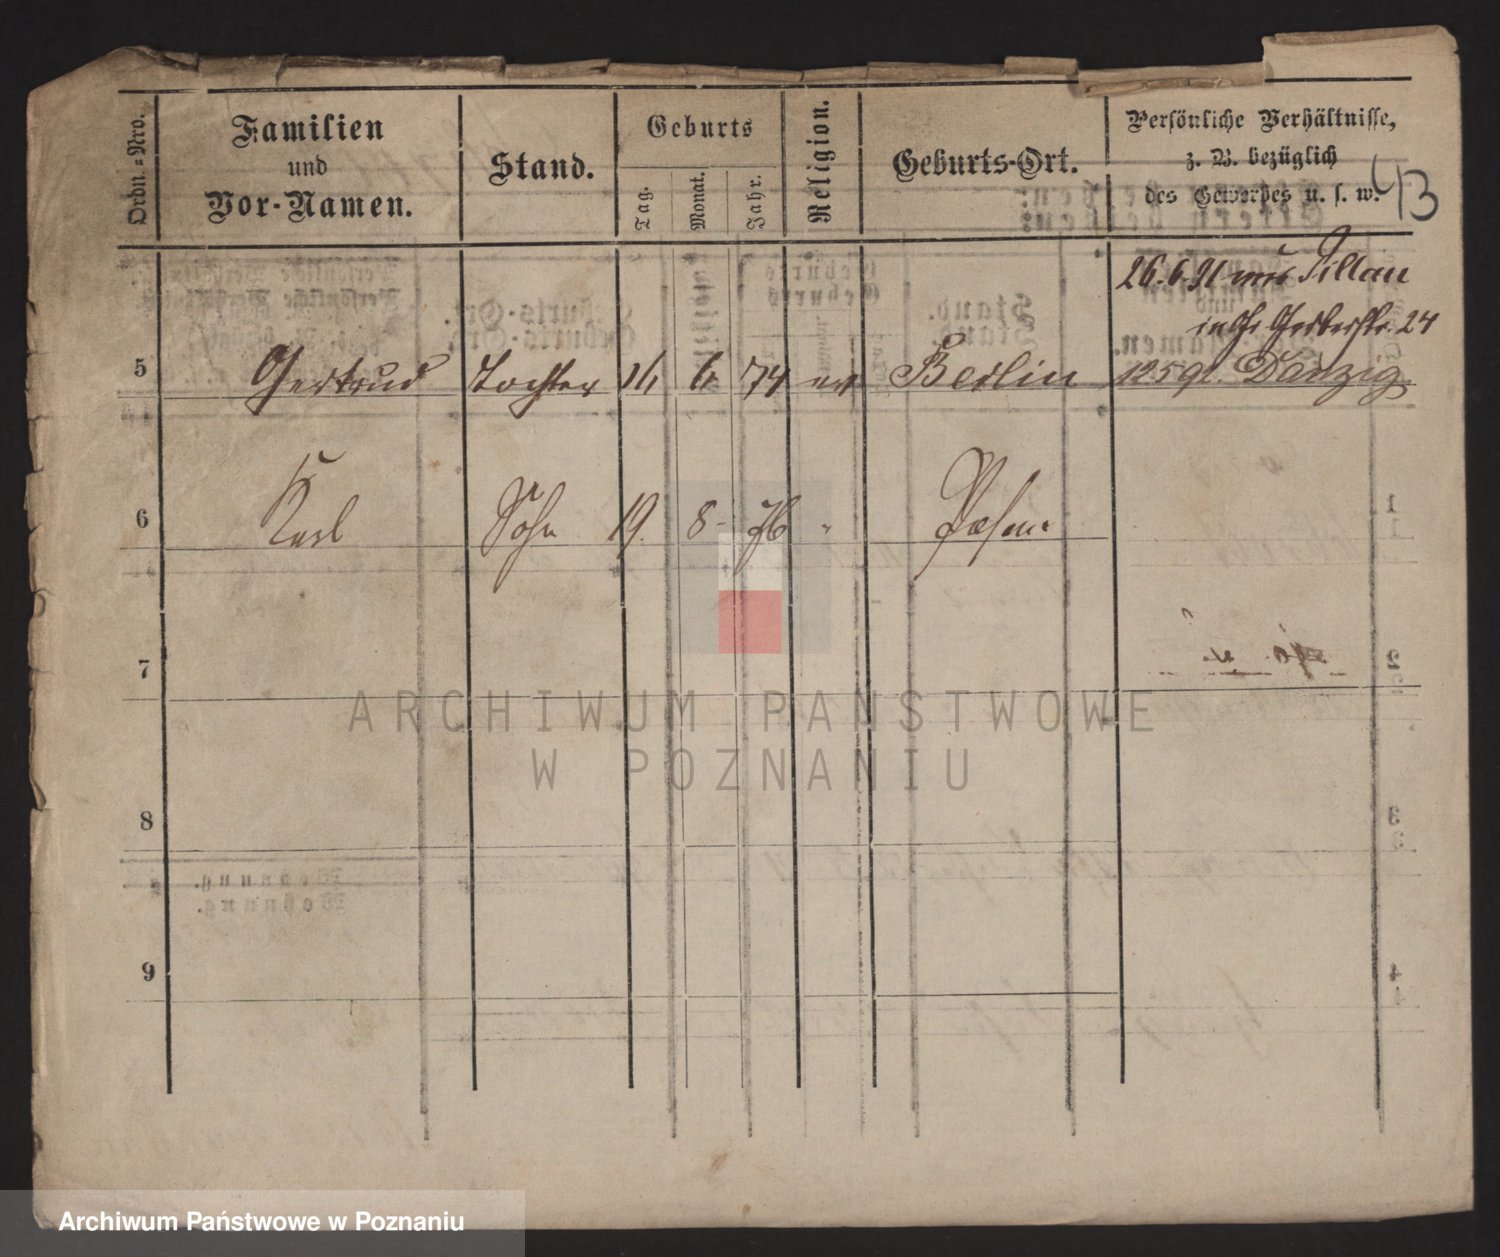 Ordn.=Nro.
Familien
und
Vor-Namen.
Stand.
Geburts
Tag.
Monat.
Jahr.
Religion.
Geburts-Ort.
Persönliche Verhältnisse,
z. B. bezüglich
des Gewerbes u. s. w.
13
26.6.91 aus Pillau
in Gr. Gerberstr. 24
5 Gertrud Tochter 16 6 74 ev Berlin Danzig
6 Karl Sohn 19. 8 76 " Posen
7
8
9
ARCHIWUM PAŃSTWOWE
W POZNANIU
Archiwum Państwowe w Poznaniu